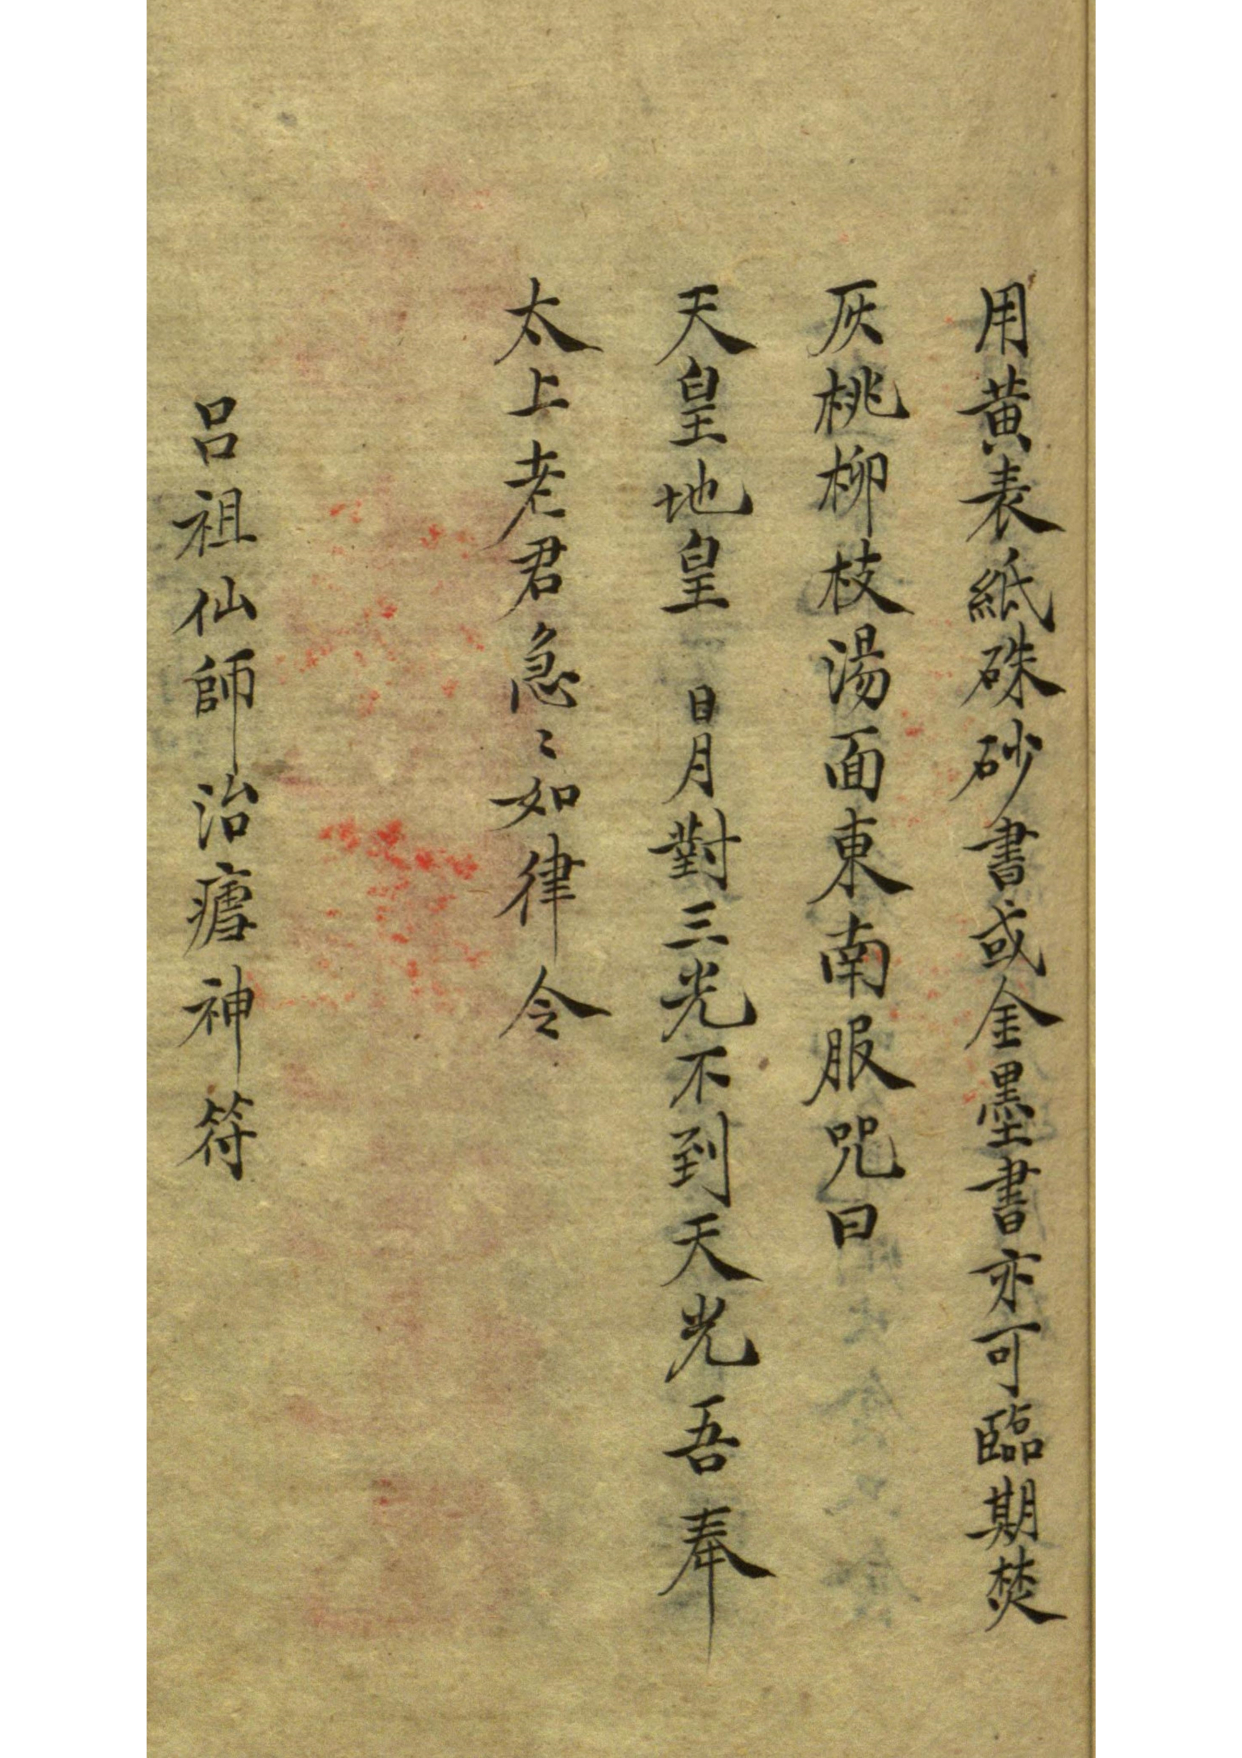 用黄表紙硃砂書或金墨書亦可臨期焚
灰桃柳枝湯面東南服咒曰
天皇地皇 日月對三光不到天光吾奉
太上老君急〻如律令
呂祖仙師治瘧神符